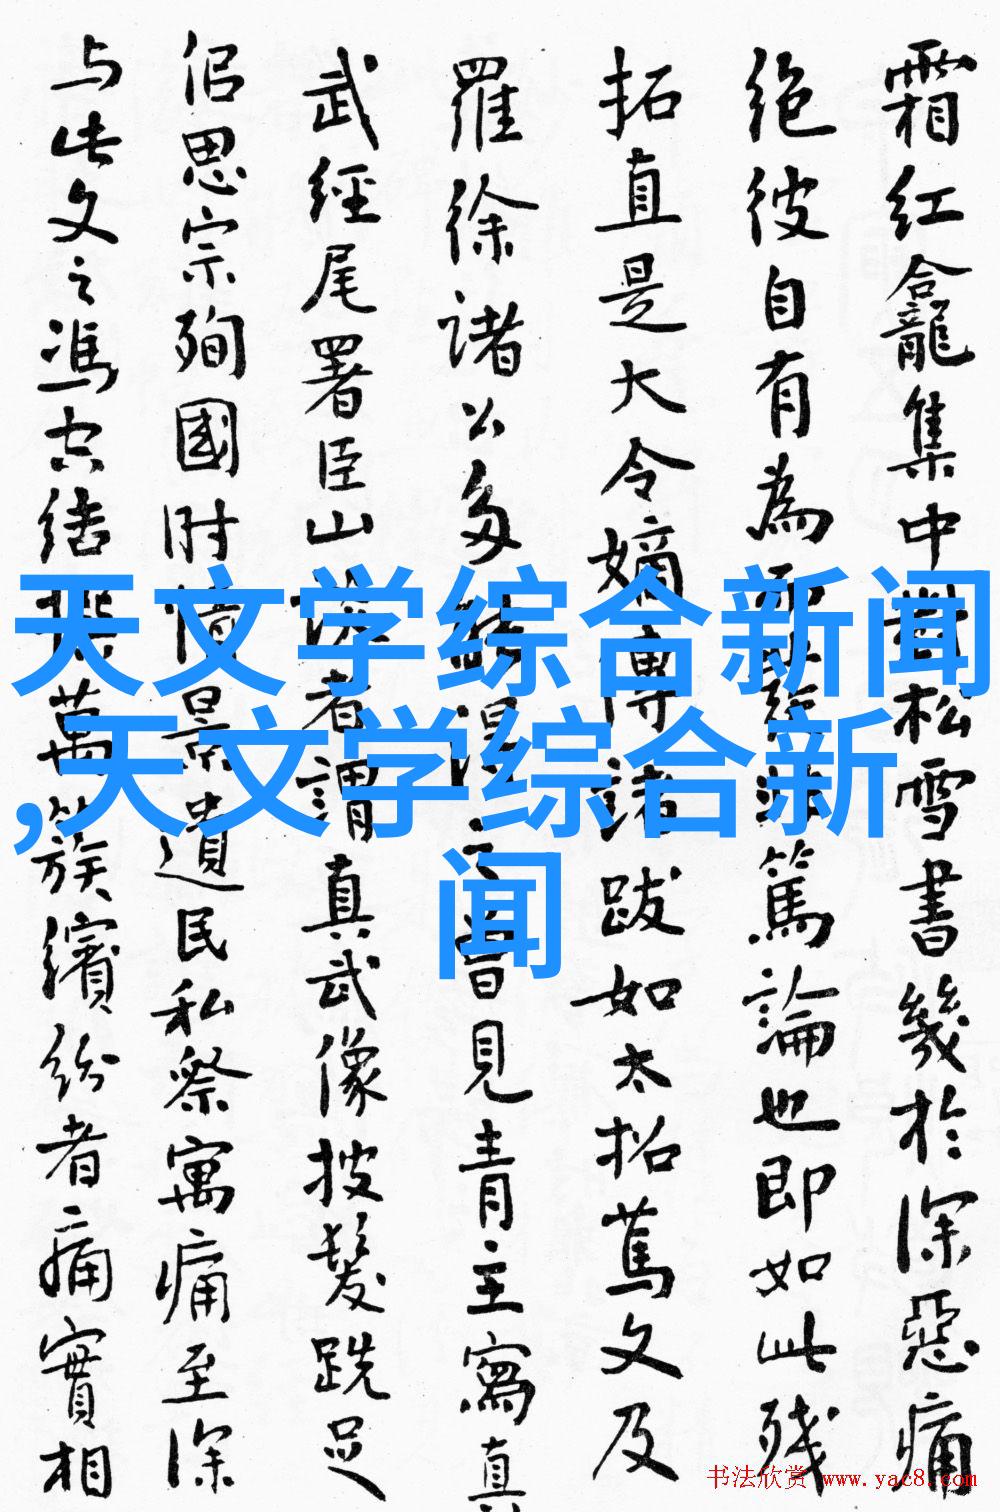 霜红龛集中對松雪書幾於深惡痛
绝彼自有為而發非篤論也即如此残
拓直是大令嫡傳諸跋如太拙篤文及
羅徐諸公多
曾見青主寫真
武經尾署臣山
者謂真武像披髮跣足
侣思宗殉國时情景遺民私察寓痛至深
与此文之馮
萬簇繽紛者痛實相
天文学综合新闻
,天文学综合新
闻
书法欣赏 www.yac8.com